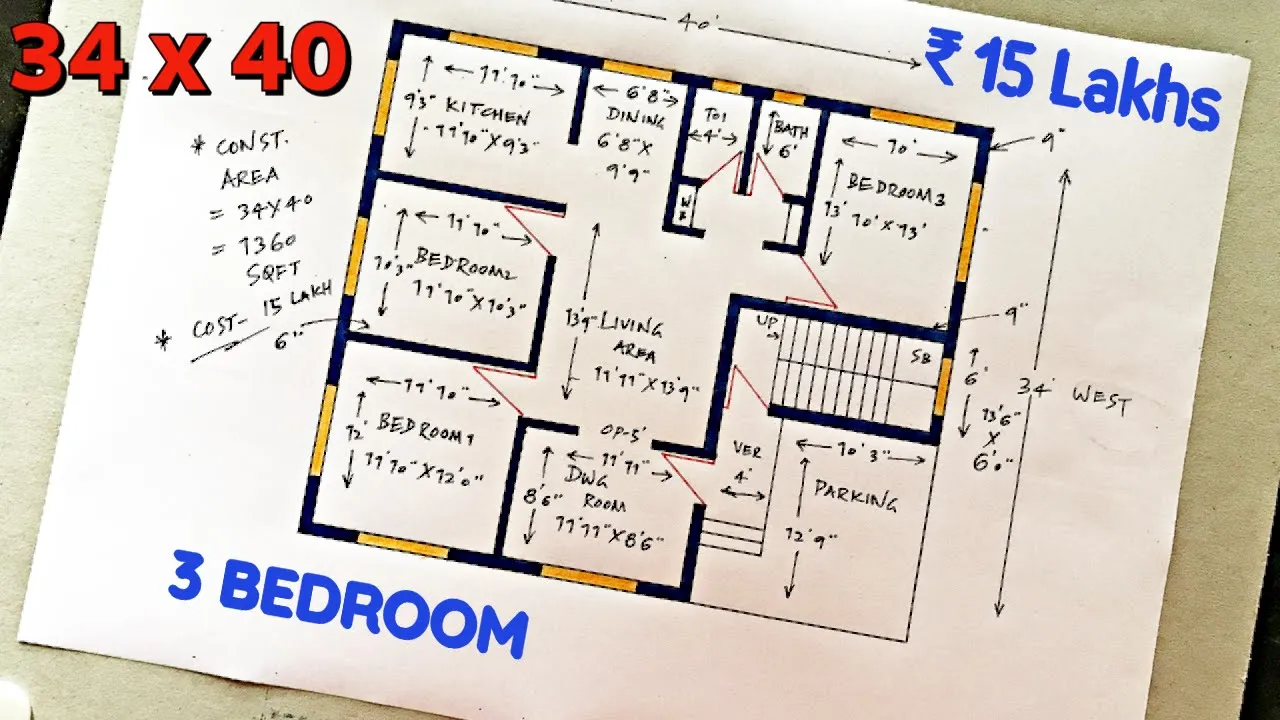 34 x 40
₹ 15 Lakhs
40'
* CONST.
AREA
= 34X40
= 1360
SQFT
* COST- 15 LAKH
6"
11'10"
9'3" KITCHEN
11'10"X9'3"
6'8"
DINING
6'8"X
9'9"
TOI
4'
BATH
6'
10'
BEDROOM3
13' 10'X13'
9"
11'10"
10'3" BEDROOM2
11'10"X10'3"
13'9" LIVING
AREA
11'11"X13'9"
UP
SB
9"
6'
13'6"
X
6'0"
34' WEST
11'10"
12' BEDROOM1
11'10"X12'0"
OP-5'
11'11"
DWG
8'6" ROOM
11'11"X8'6"
VER
4'
10'3"
PARKING
12'9"
3 BEDROOM